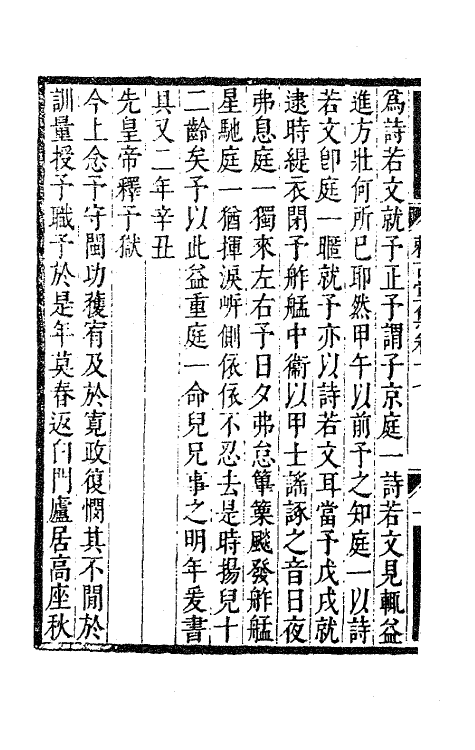 為詩若文就予正予謂子京庭一詩若文見輒益
進方壯何所巳耶然甲午以前予之知庭一以詩
若文卽庭一暱就予亦以詩若文耳當予戊戌就
逮時緹衣閉予舴艋中衞以甲士謠諑之音日夜
弗息庭一獨來左右予日夕弗怠篳篥颷發舴艋
星馳庭一猶揮淚呼側依依不忍去是時揚兒十
二齡矣予以此益重庭一命兒兄事之明年爰書
具又二年辛丑
先皇帝釋予獄
今上念予守閩功穫宥及於寬政復憫其不閒於
訓量授予職予於是年莫春返白門廬居高座秋